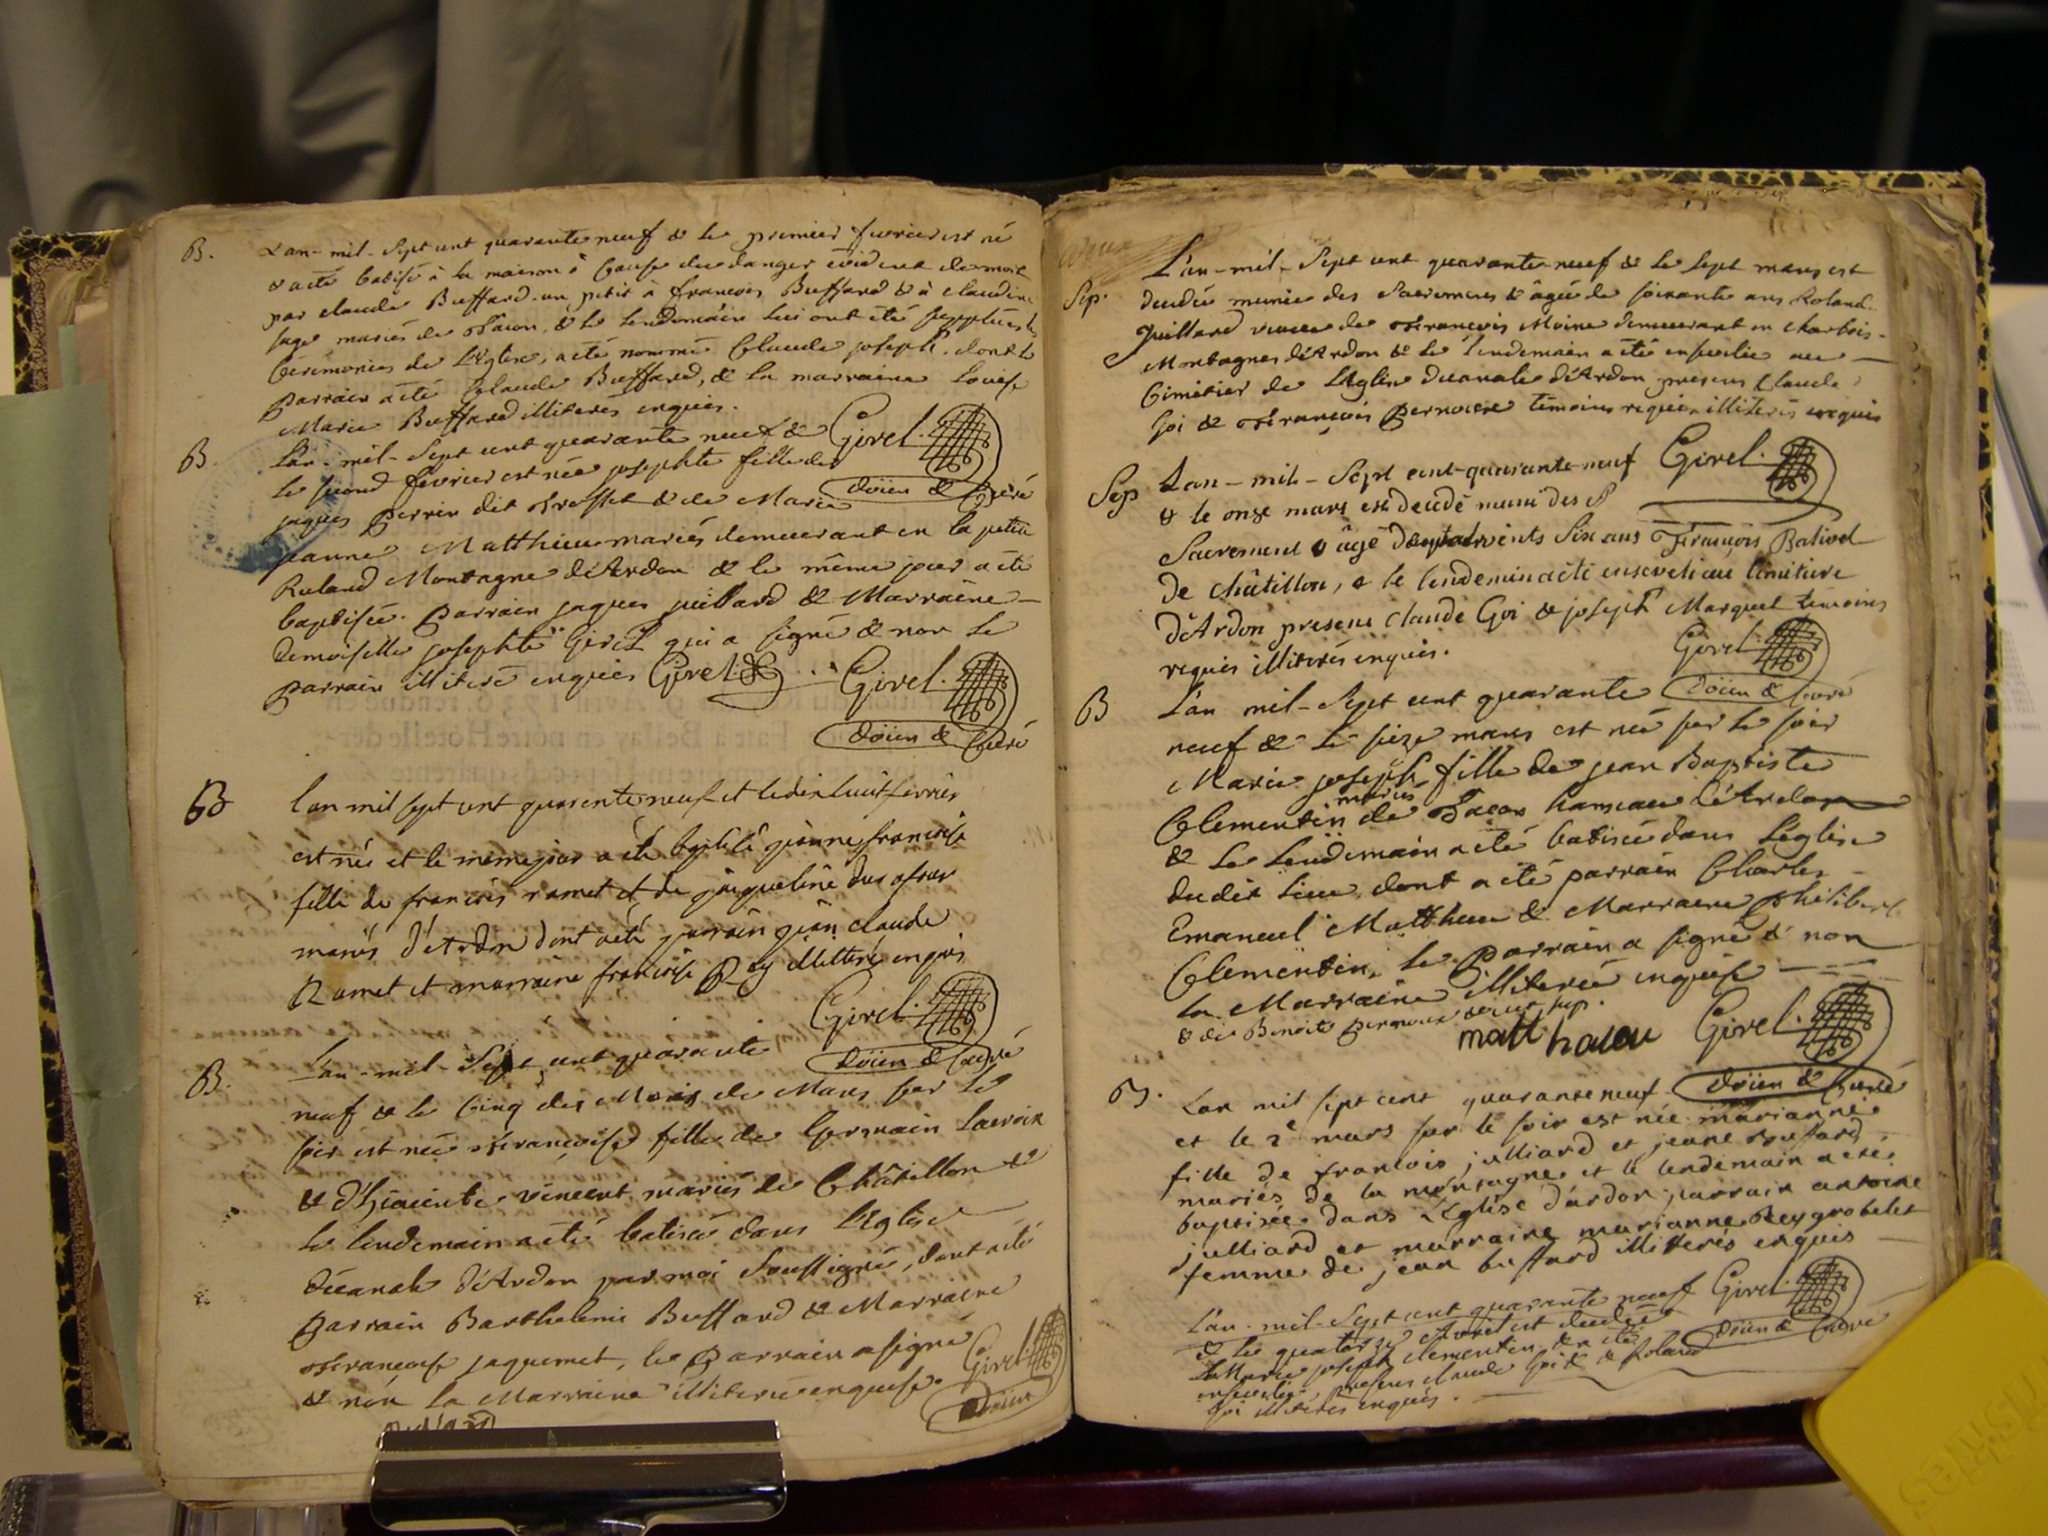 B. L'an-mil-Sept cent quarante neuf & le premier fevrier est né
& a eté batisé à la maison à Cause du danger évident de mort
par claude Buffard un petit à françois Buffard & à claudine
mariés de & le lendemain lui ont été suppléees les
Cérémonies de L'Eglise, a eté nommé Claude joseph, dont le
parrain a eté Claude Buffard, & la marraine Louise
Marie Buffard illiterés enquis.
Givel.
doïen & Curé
B. L'an-mil-Sept cent quarante neuf &
le second fevrier est née josephte fille de
jaques perrin dit & de Marie
jeanne Matthieu mariés demeurant en la petite
Ruland Montagne d'Ardon & le même jour a eté
baptisée. parrain jaques juillard & Marraine
Demoiselle josephte Givel qui a signé & non le
parrain illiteré enquis Givel
Givel.
doïen & Curé
B l'an mil sept cent quarente neuf et le dix huit fevrier
est née et le meme jour a eté bptisée jeanne francoise
fille de francois ramet et de jacqueline
mariés d'Ardon dont a eté parrain jean claude
Ramet et marraine francoise Rey illitterés enquis
Givel.
doïen & Curé
B. L'an-mil-Sept cent quarante
neuf & le Cinq des Mois de Mars sur le
soir est née françoise fille de Germain Lacroix
& d'hiacinte vincent mariés de Châtillon &
le lendemain a eté batisée dans L'Eglise
décanale d'Ardon par moi Soussigné, dont a eté
parrain Barthelemi Buffard & Marraine
françoise jaquemet, le Parrain a signé
& non la Marraine illiterée enquise.
Givel.
Doïen
L'an-mil-Sept cent quarante neuf & le sept mars est
Sep. decédée munie des Sacremens & âgée de soixante ans Roland
juillard veuve de françois Moine demeurant en
Montagnes d'Ardon & le lendemain a été ensevelie au
Cimetier de L'Eglise decanale d'Ardon presens Claude
Goi & françois pernoux témoins requis illiterés enquis
Givel.
Sep L'an-mil-Sept cent-quarante-neuf
& le onze mars est decédé muni des S
Sacremens & âgé de quatrevints Six ans François
De châtillon, & le lendemin a eté enseveli au Cimetiere
d'Ardon presens claude Goi & joseph Marquet temoins
requis illiterés enquis.
Givel.
doïen & Curé
B L'an mil-Sept cent quarante
neuf & le seize mars est née sur le soir
Marie joseph fille de jean Baptiste
mariés
Clementin de hameau d'Ardon
& le lendemain a eté batisée dans L'eglise
dudit lieu, dont a eté parrain Charles
Emanuel Matthieu & Marraine philiberte
Clementin, le parrain a signé & non
la Marraine illiterée enquise
& de Benoite pernoux
matthaieu
Givel.
doïen & Curé
B. L'an mil sept cent quarante neuf
et le 2e mars sur le soir est née marianne
fille de francois julliard et jeane buffard
mariés de la montagne et le lendemain a eté
baptisée dans L'Eglise d'ardon, parrain antoine
julliard et marraine marianne Reygrobelet
femme de jean buffard illitterés enquis
Givel.
doïen & Curé
L'an-mil-Sept cent quarante neuf
& le quatorze Avril est decédée
La Marie joseph clementin, & a eté
ensevelie presens claude Goi & Roland
Goi illiterés enquis.